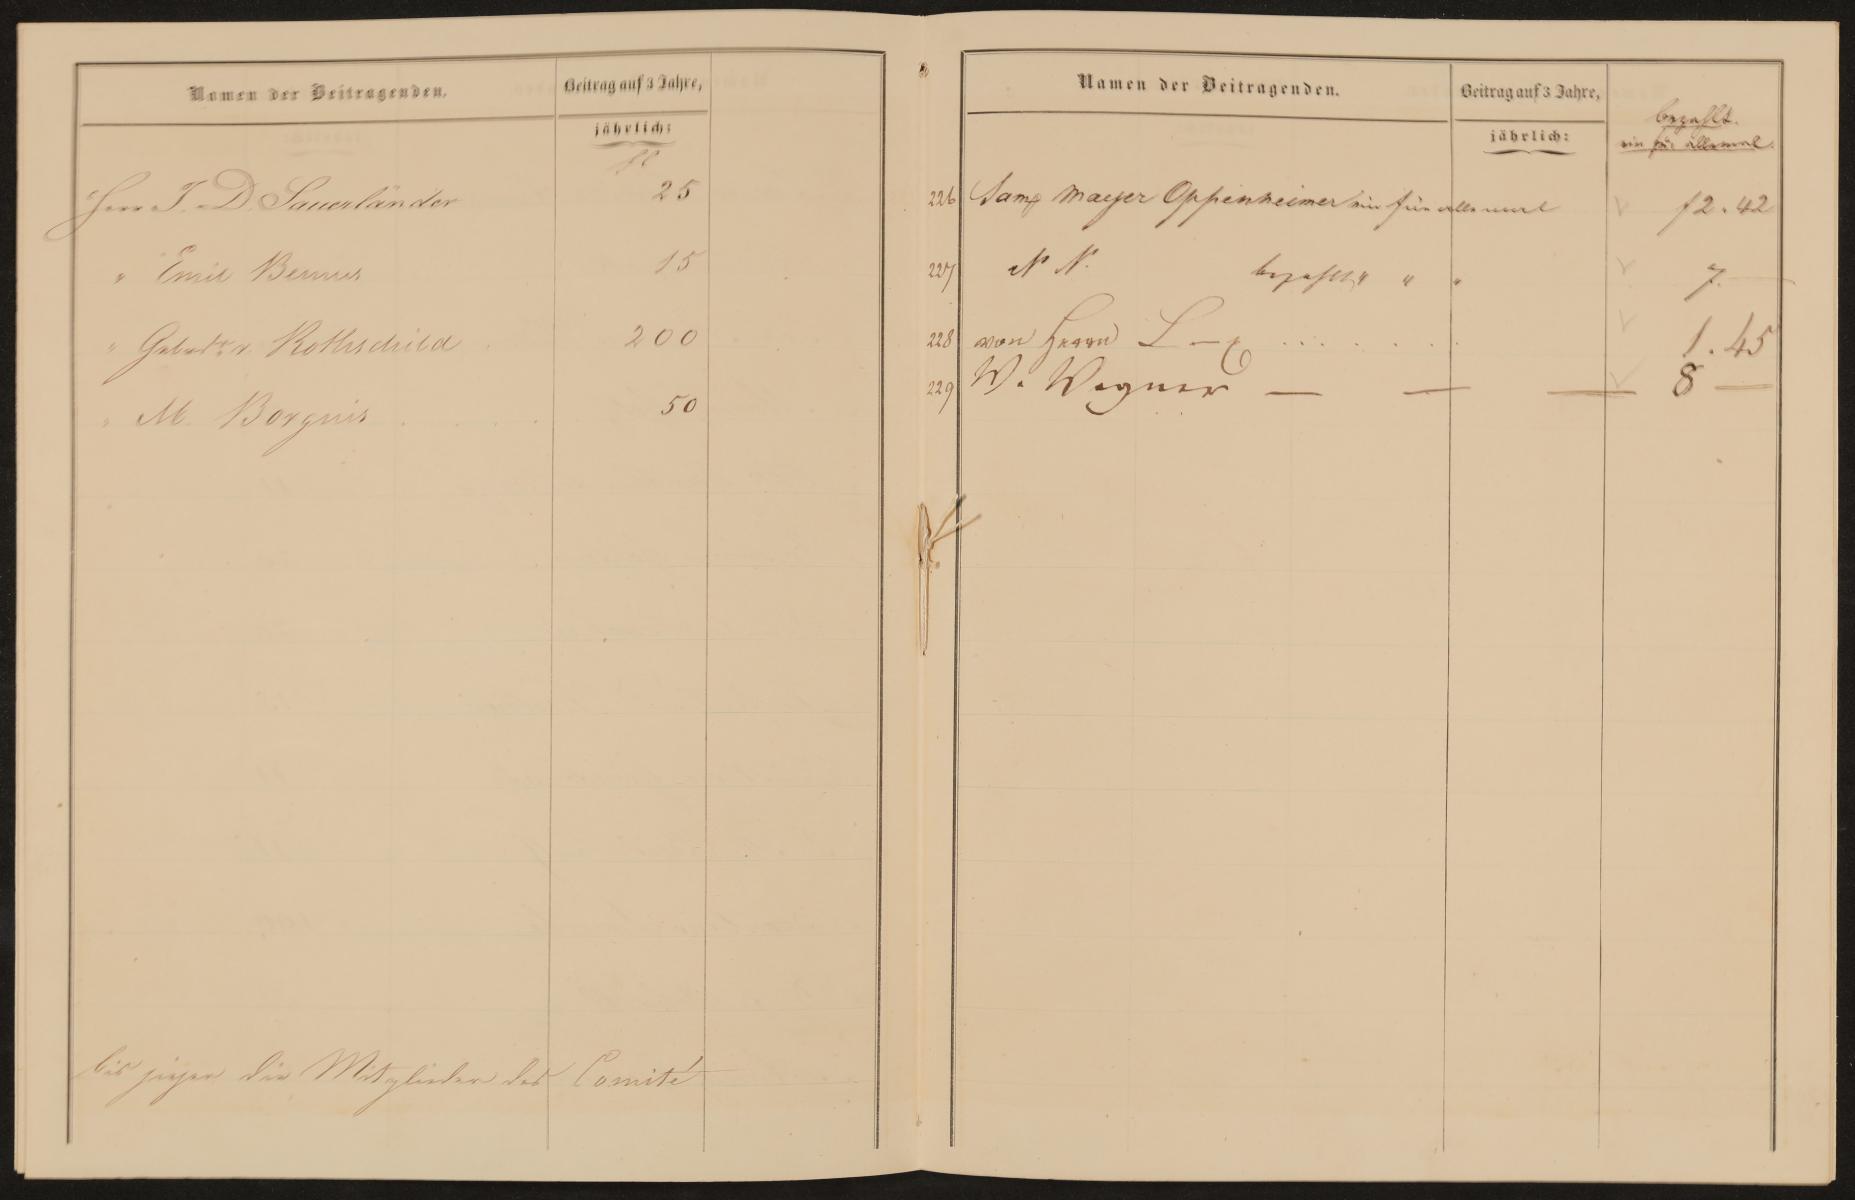 Namen der Beitragenden.
Beitrag auf 3 Jahre,
jährlich:
fl
Herr J. D. Sauerländer 25
" Emil Bernus 15
" Gebrdr v. Rothschild 200
" M. Borgnis 50
bis hieher die Mitglieder des Comité
Namen der Beitragenden.
Beitrag auf 3 Jahre,
jährlich:
bezahlt.
ein für allemal.
226 Maeyer Oppenheimer ein für allemal f 2.42
227 N N. bezahlt " " " 7.—
228 von Herrn L–g . . . . . . 1.45
229 W. Wagner — — — 8 —